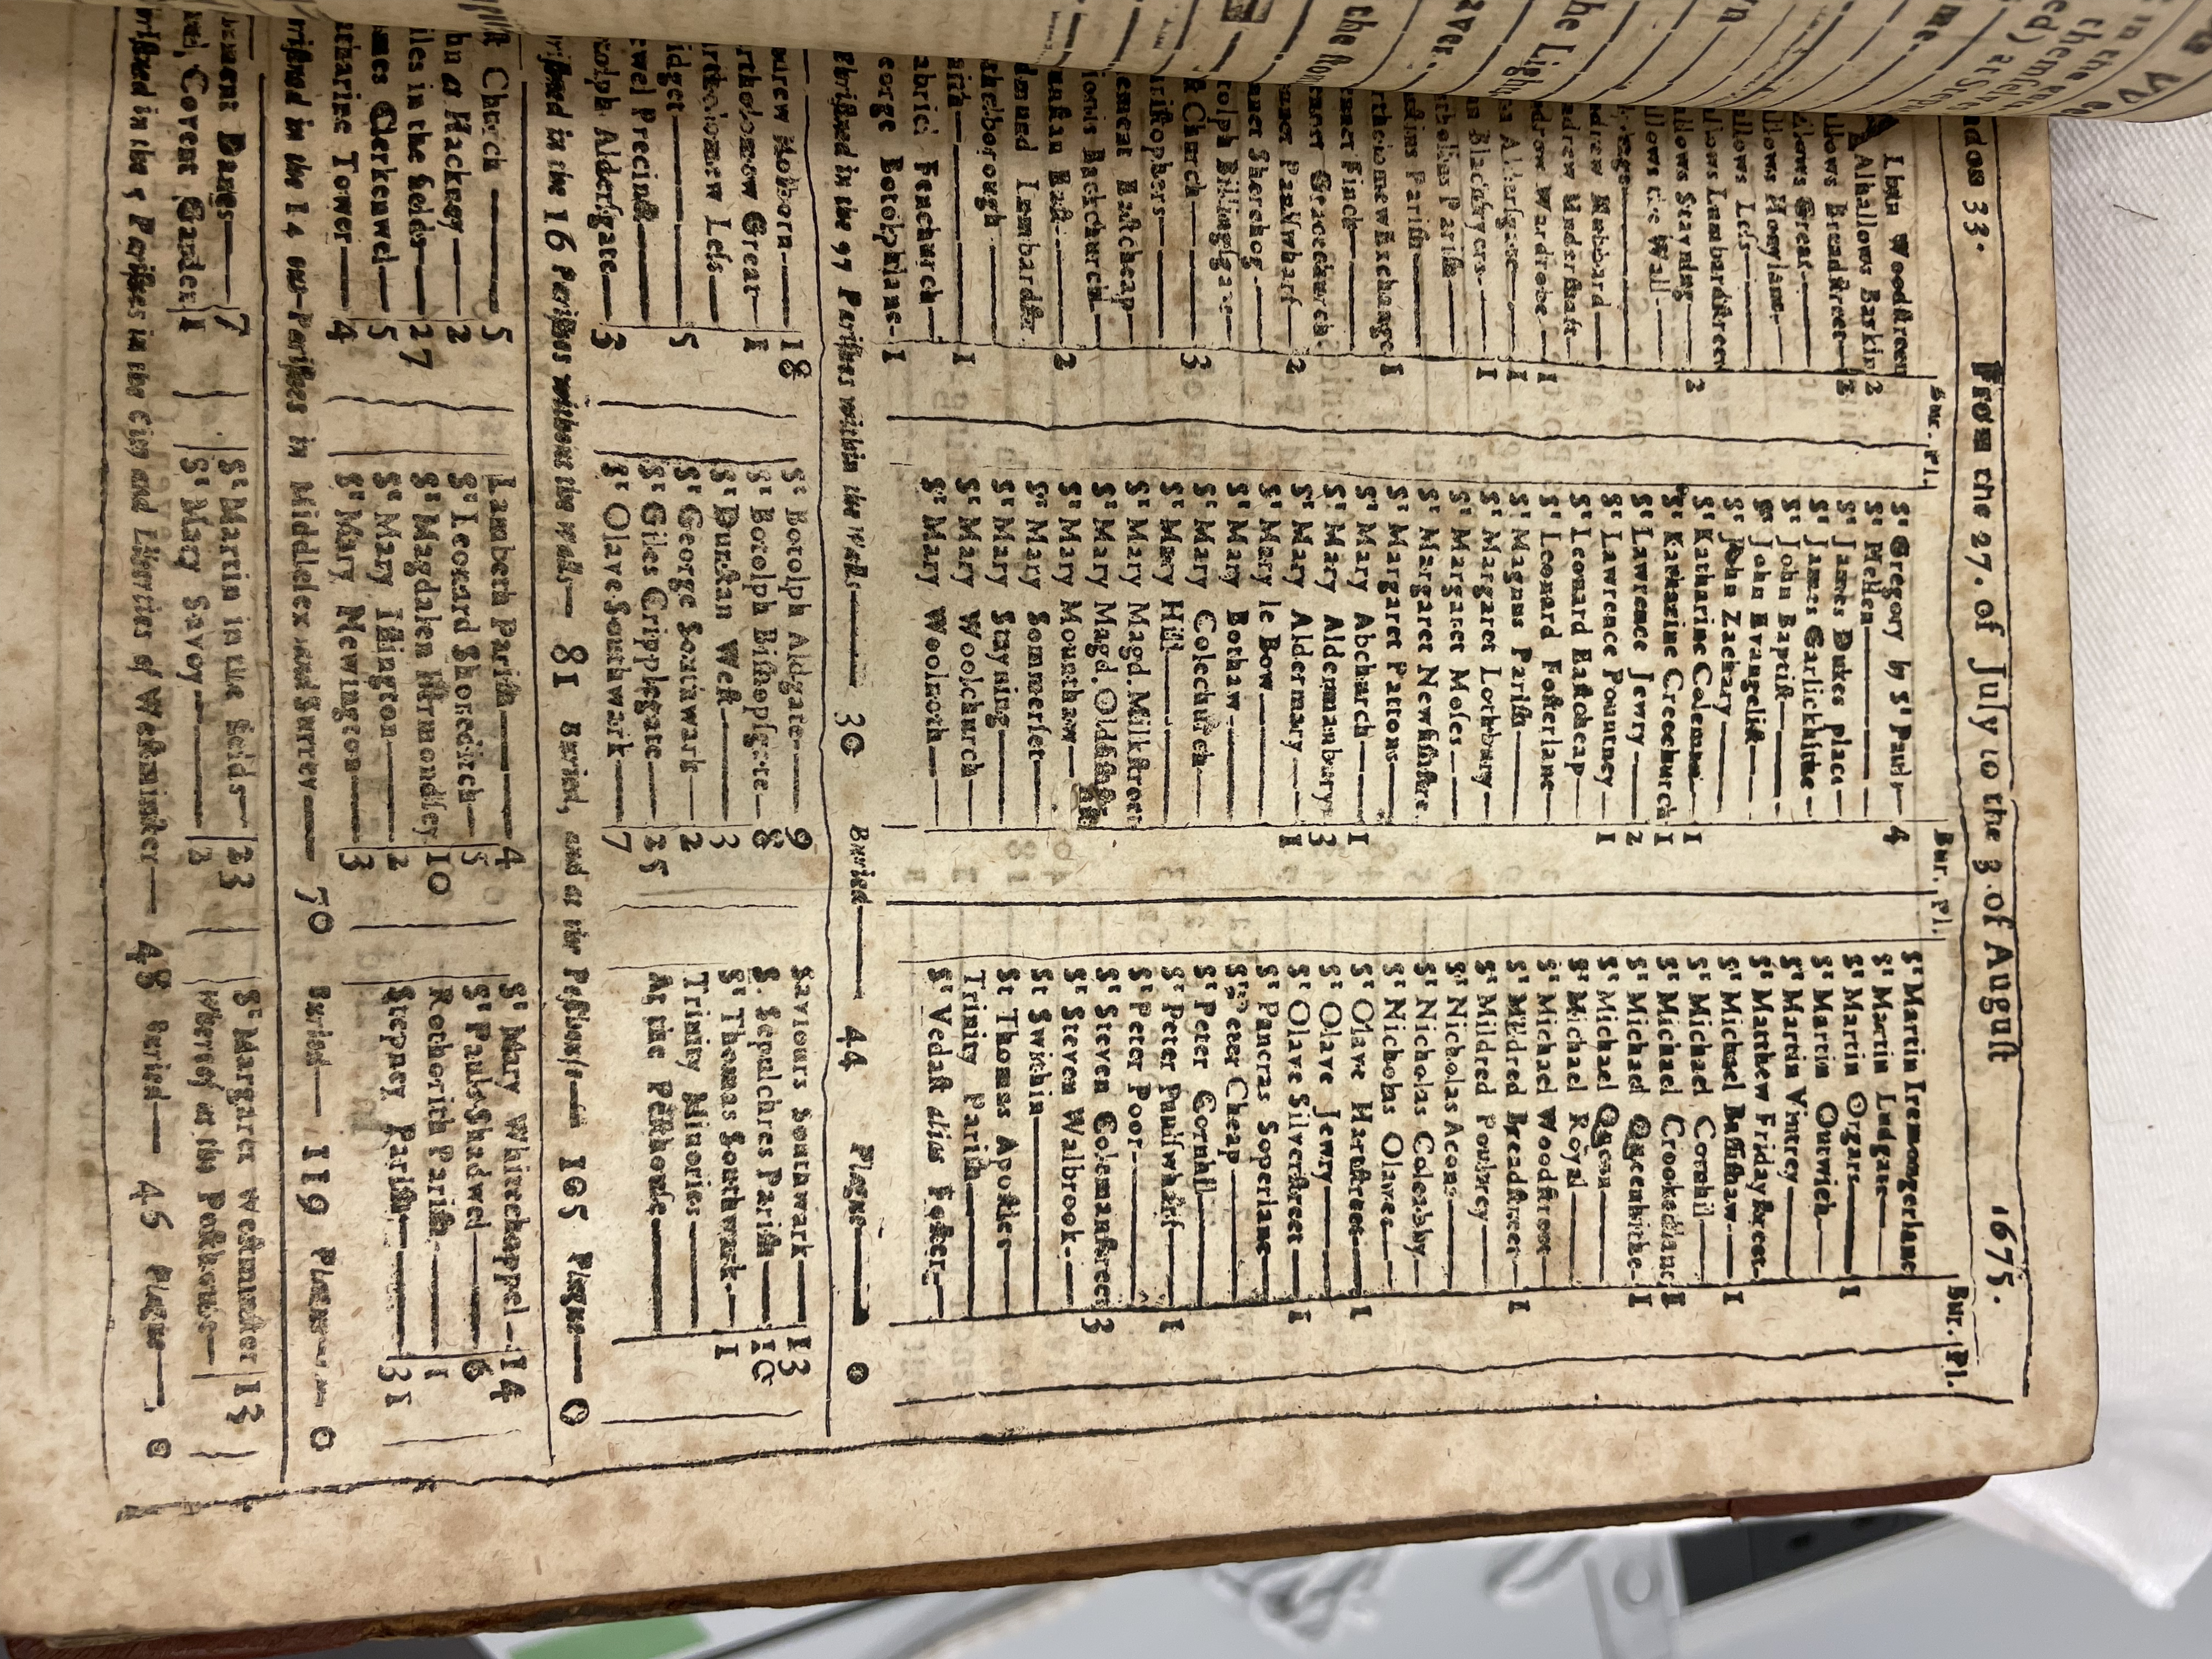 ndon 33. From the 27. of July to the 3. of August 1675.
Bur. Pl.
Bur. Pl.
Bur. Pl.
lban Woodstreet
Alhallows Barkin 2
llows Breadstreet 2
llows Great
llows Honylane
llows Less
llows Lumbardstreet
llows Stayning 2
llows the Wall
drew Hubbard
drew Undershaft
drew Wardrobe 1
n Aldersgate 1
n Blackfryers 1
tholins Parish
stins Parish
rtholomew Exchange 1
ennet Finch
ennet Gracechurch
nnet PaulsWharf 2
nnet Sherehog
tolph Billingsgate
st Church 3
ristophers
ement Eastcheap
ionis Backchurch
unstan East 2
dmund Lombardstr.
thelborough
aith 1
abriel Fenchurch
eorge Botolphlane 1
St Gregory by St Pauls 4
St Hellen
St James Dukes place
St James Garlickhithe
St John Baptist
St John Evangelist
St John Zachary
St Katharine Coleman 1
St Katharine Creechurch 1
St Lawrence Jewry 2
St Lawrence Pountney 1
St Leonard Eastcheap
St Leonard Fosterlane
St Magnus Parish
St Margaret Lothbury
St Margaret Moses
St Margaret Newfishstre.
St Margaret Pattons
St Mary Abchurch 1
St Mary Aldermanbury 3
St Mary Aldermary 1
St Mary le Bow
St Mary Bothaw
St Mary Colechurch
St Mary Hill
St Mary Magd. Milkstreet
St Mary Magd. Oldfishstr.
St Mary Mounthaw
St Mary Sommerset
St Mary Stayning
St Mary Woolchurch
St Mary Woolnoth
St Martin Iremongerlane
St Martin Ludgate
St Martin Orgars 1
St Martin Outwich
St Martin Vintrey
St Matthew Fridaystreet
St Michael Bassishaw 1
St Michael Cornhil
St Michael Crookedlane 1
St Michael Queenhithe 1
St Michael Queen
St Michael Royal
St Michael Woodstreet
St Mildred Breadstreet 1
St Mildred Poultrey
St Nicholas Acons
St Nicholas Coleabby
St Nicholas Olaves
St Olave Hartstreet 1
St Olave Jewry
St Olave Silverstreet 1
St Pancras Soperlane
St Peter Cheap
St Peter Cornhil
St Peter Paulswharf 1
St Peter Poor
St Steven Colemanstreet 3
St Steven Walbrook
St Swithin
St Thomas Apostles
Trinity Parish
St Vedast alias Foster
hristned in the 97 Parishes within the Walls 30 Buried 44 Plague 0
ndrew Holborn 18
rtholomew Great 1
rtholomew Less
idget 5
ewel Precinct
tolph Aldersgate 3
St Botolph Aldgate 9
St Botolph Bishopsgate 8
St Dunstan West 3
St George Southwark 2
St Giles Cripplegate 25
St Olave Southwark 7
Saviours Southwark 13
S. Sepulchres Parish 10
St Thomas Southwark 1
Trinity Minories
At the Pesthouse
hristned in the 16 Parishes without the walls 81 Buried, and at the Pesthouse 105 Plague 0
hrist Church 5
hn at Hackney 2
iles in the fields 27
ames Clerkenwel 5
tharine Tower 4
Lambeth Parish 4
St Leonard Shoreditch 5
St Magdalen Bermondsey 10
St Mary Islington 2
St Mary Newington 3
St Mary Whitechappel 14
St Pauls Shadwel 6
Rotherith Parish 1
Stepney Parish 31
hristned in the 14 out-Parishes in Middlesex and Surrey 70 Buried 119 Plague 0
lement Danes 7
ul, Covent Garden 1
St Martin in the fields 23
St Mary Savoy 2
St Margaret Westminster 13
Whereof at the Pesthouse
hristned in the 5 Parishes in the City and Liberties of Westminster 48 Buried 46 Plague 0